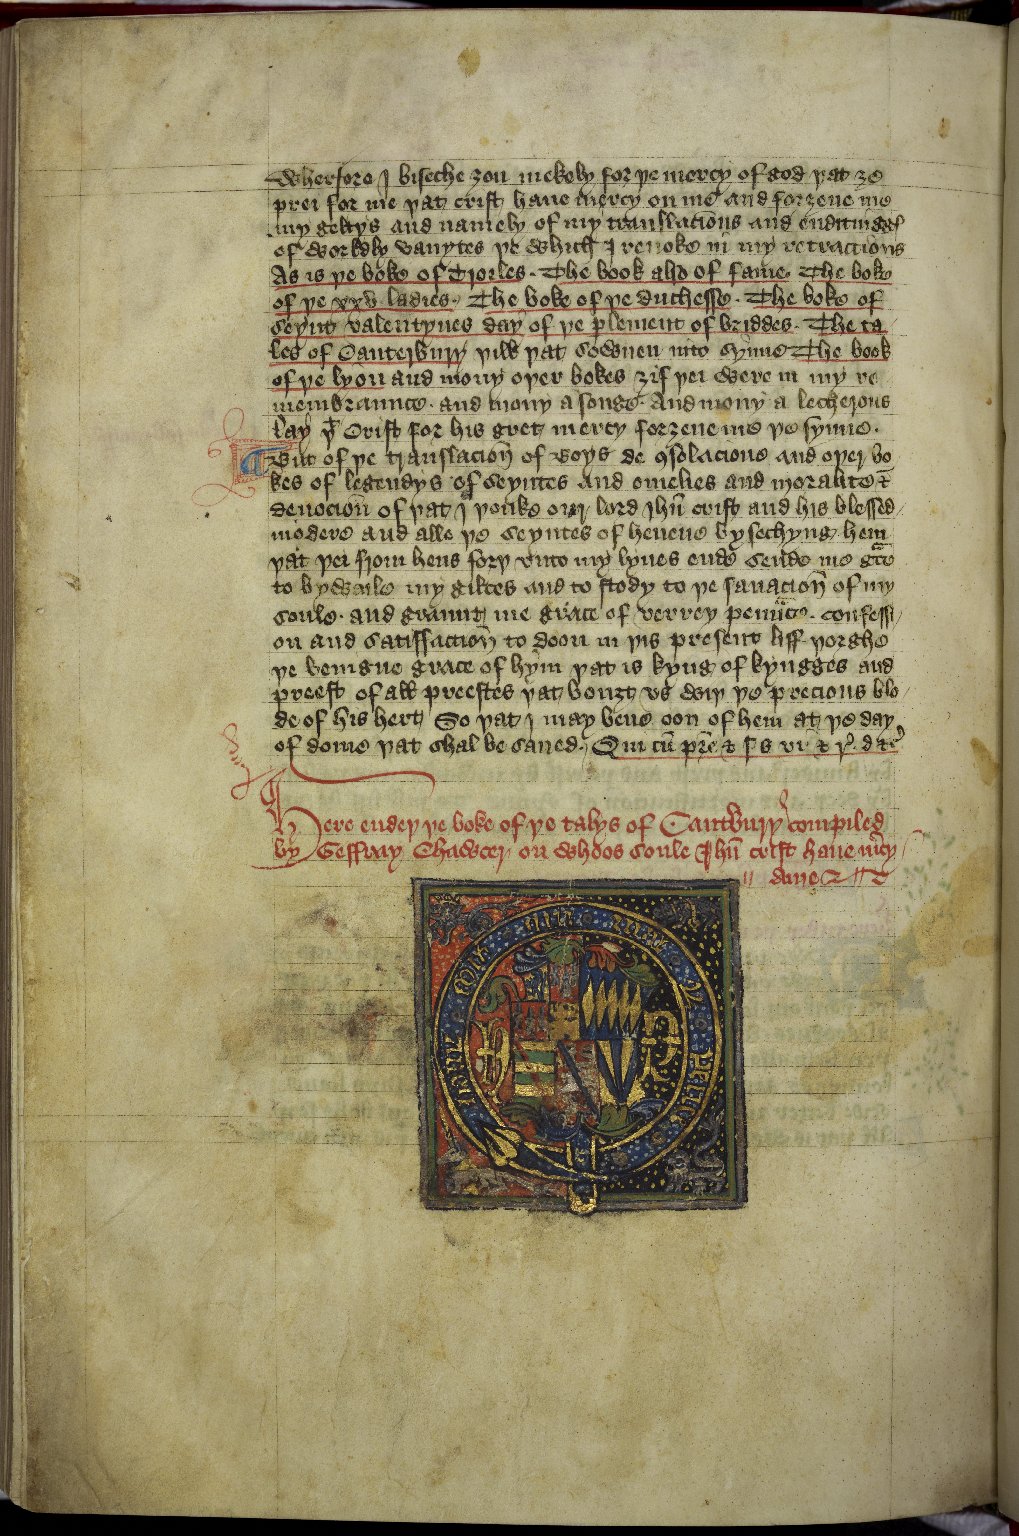 Wherfore I biseche ȝou mekely for þe mercy of god þat ȝe
prei for me þat crist haue mercy on me and forȝeue me
my geltys and namely of my translaciōns and enditinges
of workdly vanytes þe which I reuoke in my retractions
As is þe boke of Troiles. The book also of fame. The boke
of þe xxv ladies. The boke of þe duchesse. The boke of
seynt valentynes day of þe plement of briddes. The ta
les of Canterbury þilk þat sownen into synne The book
of þe lyon and mony oþer bokes ȝif þei were in my re
membraunce. and mony a songe. And mony a lecherous
lay þt Crist for his gret mercy forȝeue me þe synne.
But of þe translacion̄ of Boys de ꝯsolacione and oþer bo
kes of legendys of seyntes And omelies and moralite &
deuocion̄ of þat I þonke our lord Ihū crist and his blessed
modere and alle þe seyntes of heuene bysechyng hem
þat þei from hens forþ vnto my lyues ende sende me gͣce
to bywaile my giltes and to stody to þe sauacion̄ of my
soule. and graunt me grace of verrey penͣnce. confessi
on and satisfaction̄ to doon in þis present liff þorghe
þe benigne grace of hym þat is kyng of kyngges and
preest of all preestes þat bouȝt vs wiþ þe precious blo
de of his hert So þat I may bene oon of hem at þe day
of dome þat shal be saued. Qui cū p̄re & s s vi & r d &c
Here endeþ þe boke of þe talys of Cantbury compiled
by Geffray Chawcer on whoos soule Ihū crist haue mcy
Amen